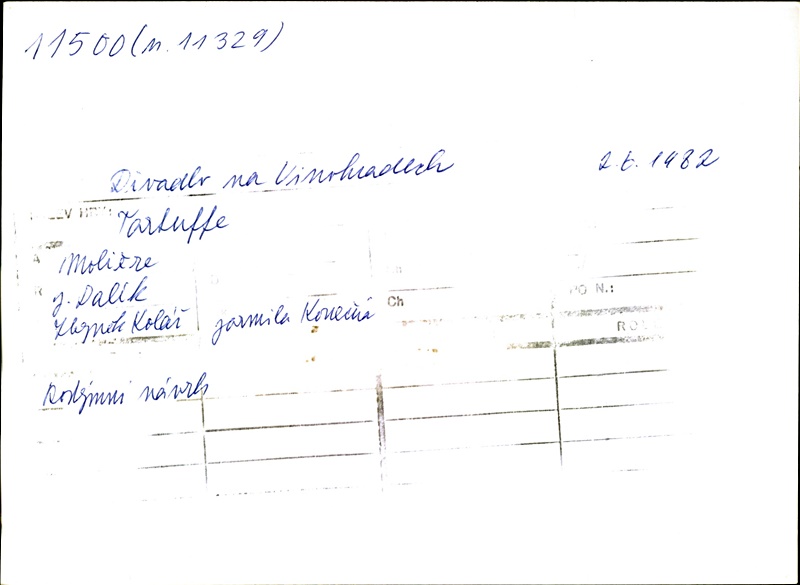 11500 (n. 11329)
Divadlo na Vinohradech 2.6. 1982
Tartuffe
Molière
J. Dalík
Zbyněk Kolář Jarmila Konečná
Ch
PO N.:
Kostýmní návrh